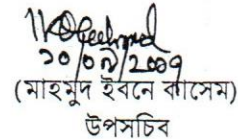 ২০/০৯/2009
(মাহমুদ ইবনে কাসেম)
উপসচিব